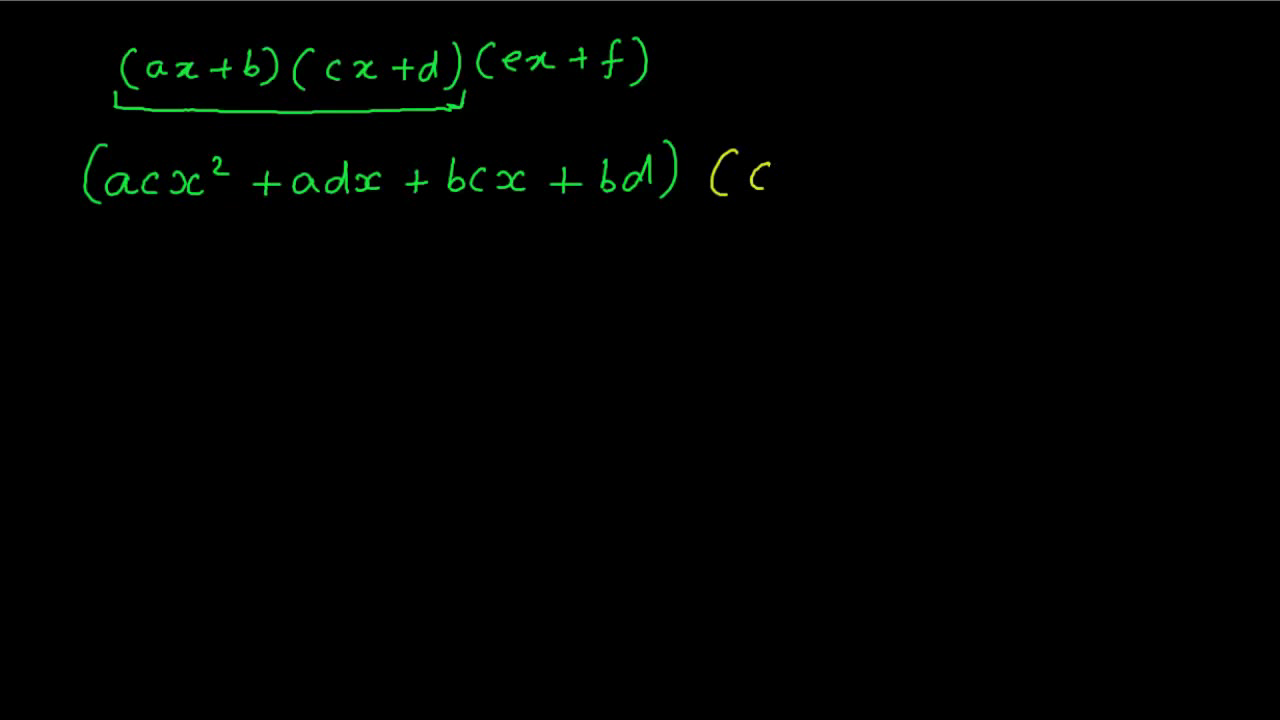 (ax+b)(cx+d)(ex+f)
(acx² +adx + bcx + bd) (c